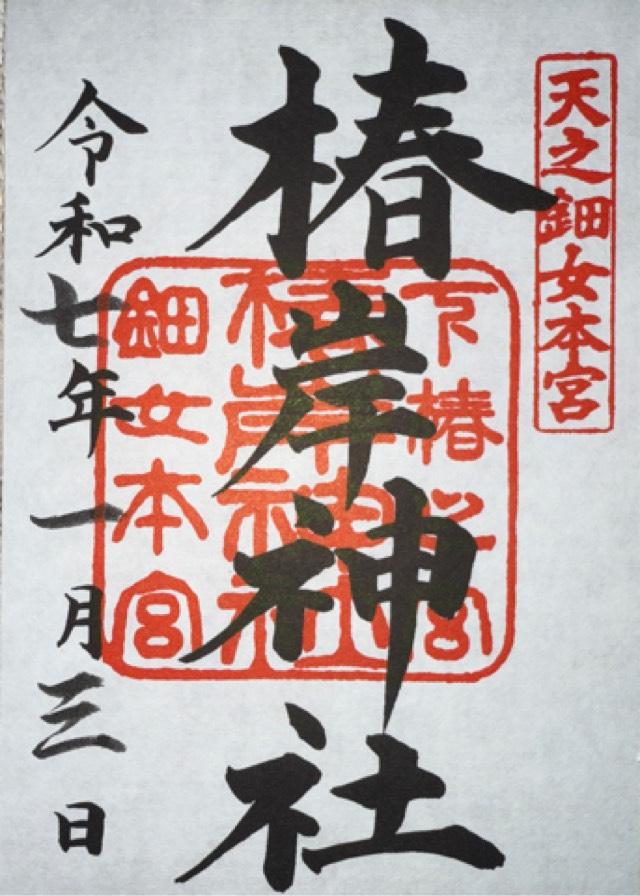 天之鈿女本宮
椿岸神社
下椿
椿岸神社
鈿女本宮
令和七年一月三日